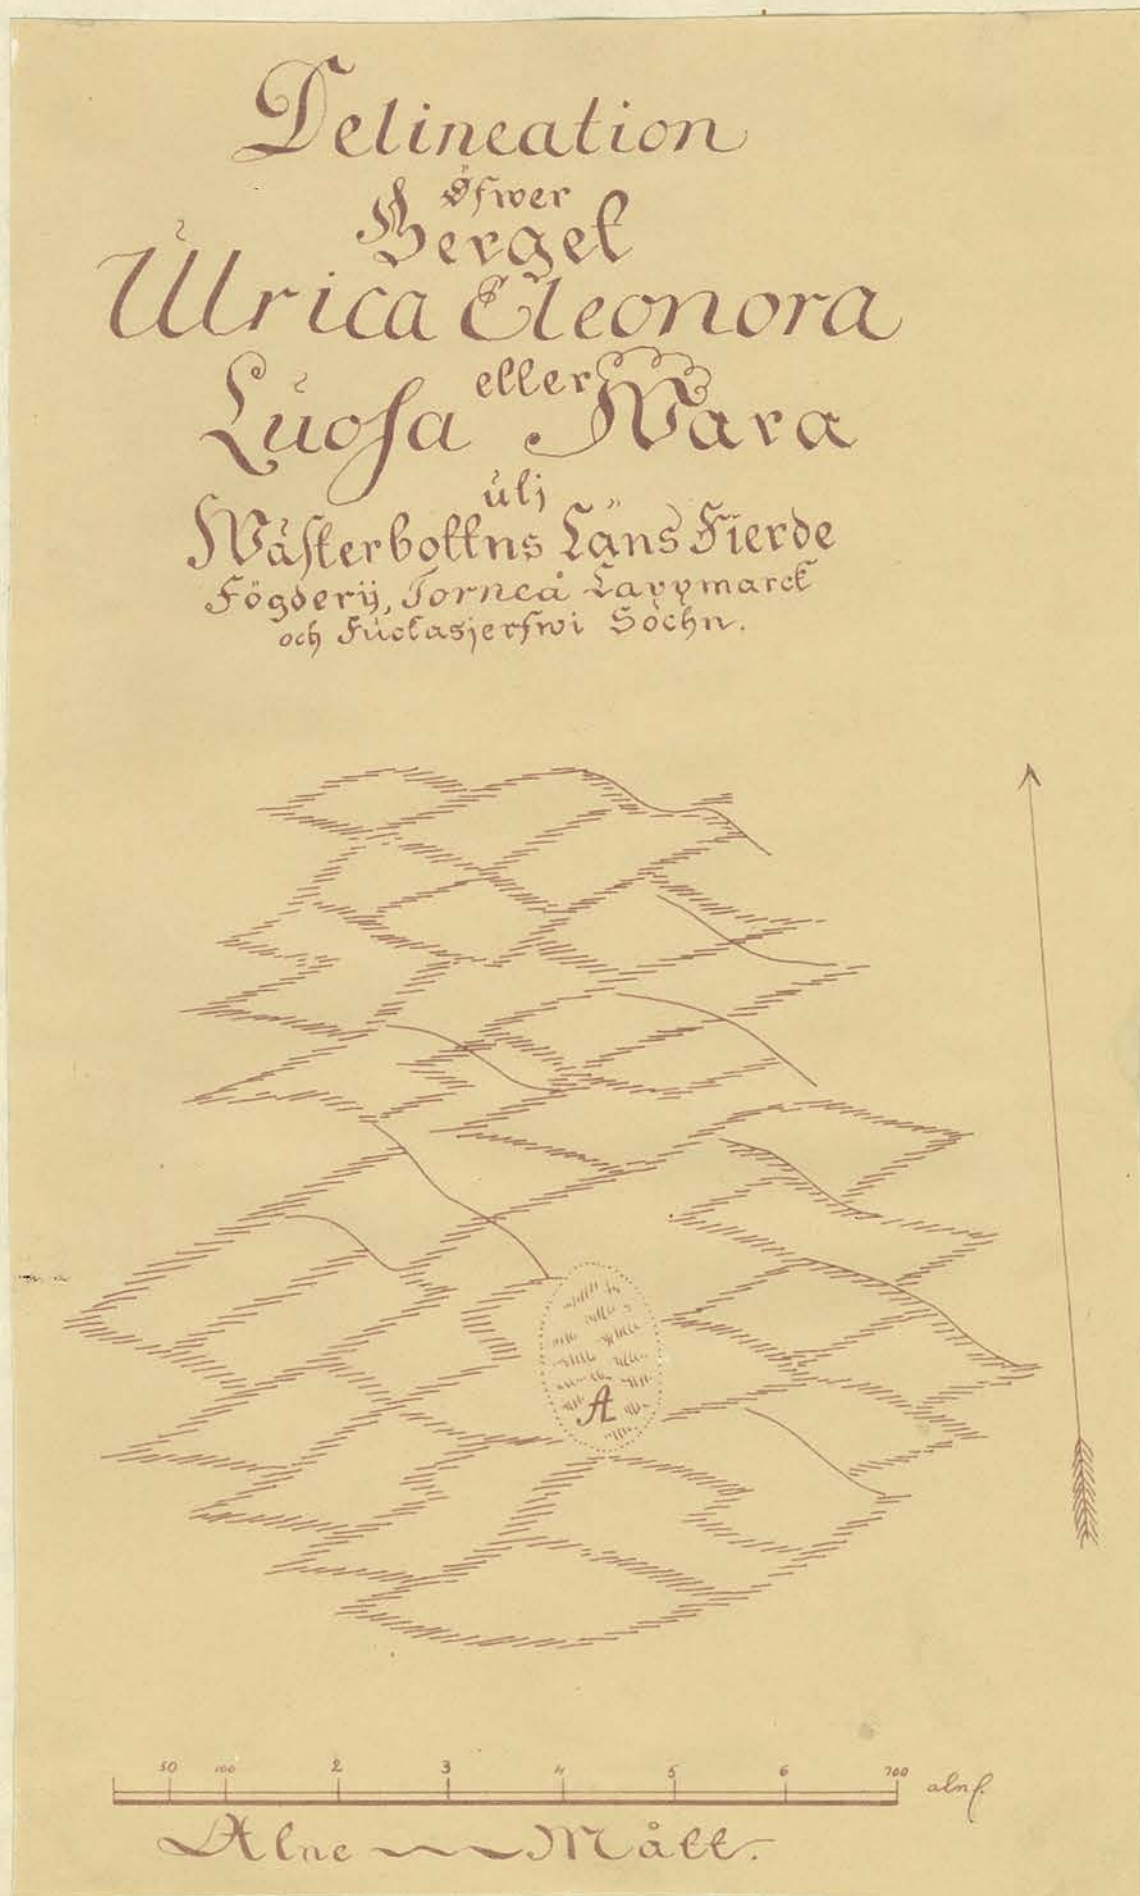 Delineation
öfwer
Berget
Ulrica Eleonora
eller
Luosa Wara
utj
Wästerbottns Läns Fierde
Fögderÿ, Torneå Lappmarck
och Juckasjerfwi Sochn.
A
50 100 2 3 4 5 6 700 alnr.
Alne Mått.